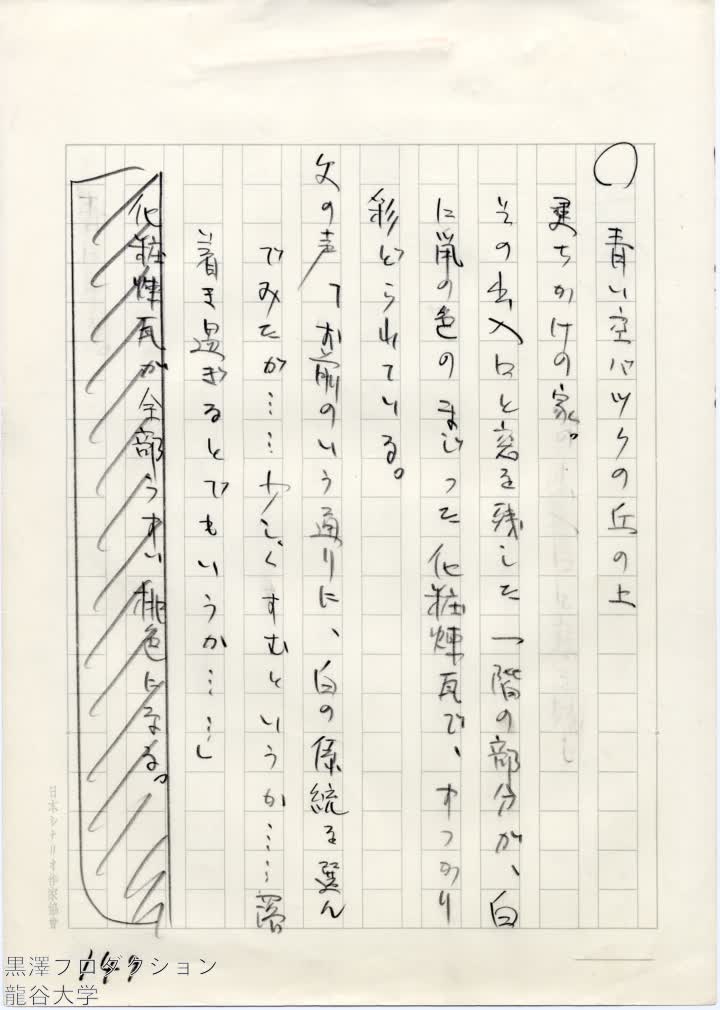 ○ 青い空バックの丘の上
建ちかけの家。
その出入口と窓を残した一階の部分が、白
に鼠の色のまじった化粧煉瓦で、すっかり
彩どられている。
父の声「お前のいう通りに、白の系統を選ん
でみたが……少しくすむというか……落
着き過ぎるとでもいうか……」
化粧煉瓦が全部うすい桃色になる。
日本シナリオ作家協會
149
黒澤プロダクション
龍谷大学